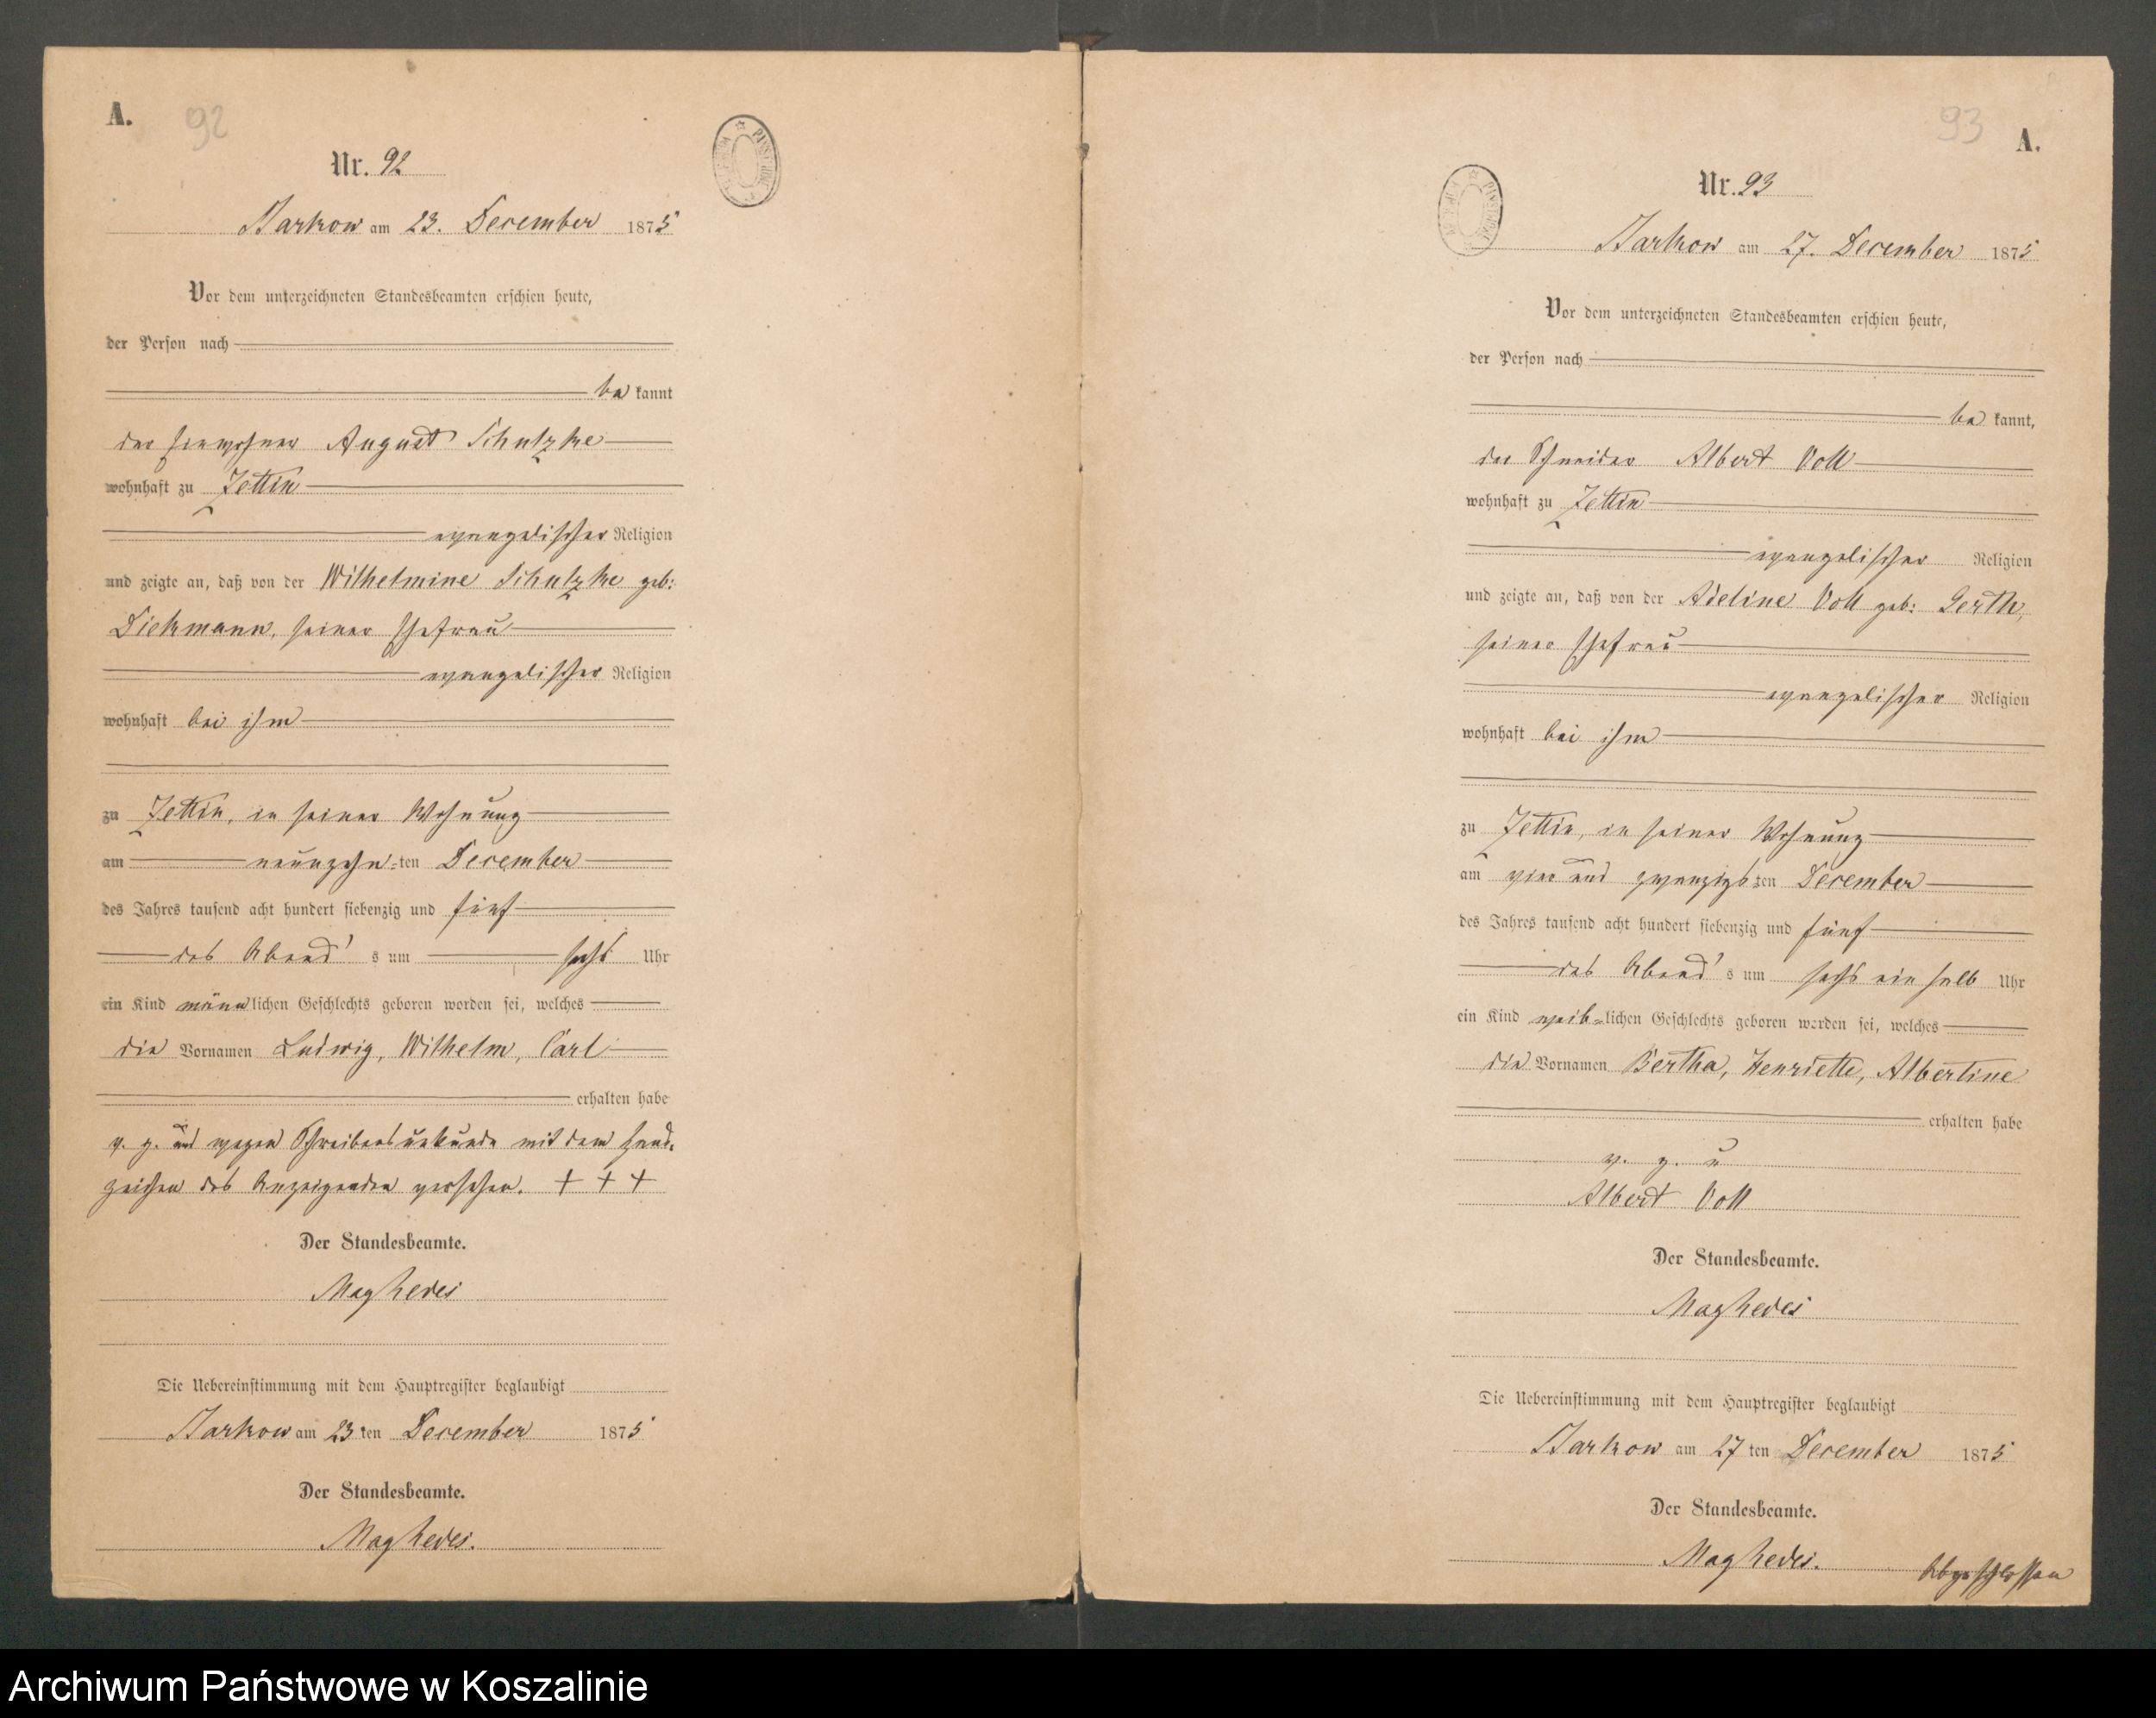 A. 92
Nr. 92
Bartkow am 23. December 1875
Vor dem unterzeichneten Standesbeamten erschien heute,
der Person nach
be kannt
der Einwohner August Schulzke
wohnhaft zu Zettin
evangelischer Religion
und zeigte an, daß von der Wilhelmine Schulzke geb:
Diekmann, seiner Ehefrau
evangelischer Religion
wohnhaft bei ihm
zu Zettin, in seiner Wohnung
am neunzehn-ten December
des Jahres tausend acht hundert siebenzig und fünf
des Abend's um sechs Uhr
ein Kind männlichen Geschlechts geboren worden sei, welches
die Vornamen Ludwig, Wilhelm, Carl
erhalten habe
v. g. und wegen Schreibensunkunde mit dem Hand-
zeichen des Anzeigenden versehen. + + +
Der Standesbeamte.
Die Uebereinstimmung mit dem Hauptregister beglaubigt
Bartkow am 23 ten December 1875
Der Standesbeamte.
93 A.
Nr. 93
Bartkow am 27. December 1875
Vor dem unterzeichneten Standesbeamten erschien heute,
der Person nach
be kannt,
der Schneider Albert Voll
wohnhaft zu Zettin
evangelischer Religion
und zeigte an, daß von der Adeline Voll geb: Gerth,
seiner Ehefrau
evangelischer Religion
wohnhaft bei ihm
zu Zettin, in seiner Wohnung
am vier und zwanzigs-ten December
des Jahres tausend acht hundert siebenzig und fünf
des Abend's um sechs ein halb Uhr
ein Kind weib-lichen Geschlechts geboren worden sei, welches
die Vornamen Bertha, Henriette, Albertine
erhalten habe
v. g. u
Albert Voll
Der Standesbeamte.
Die Uebereinstimmung mit dem Hauptregister beglaubigt
Bartkow am 27 ten December 1875
Der Standesbeamte.
Abgeschlossen
Archiwum Państwowe w Koszalinie